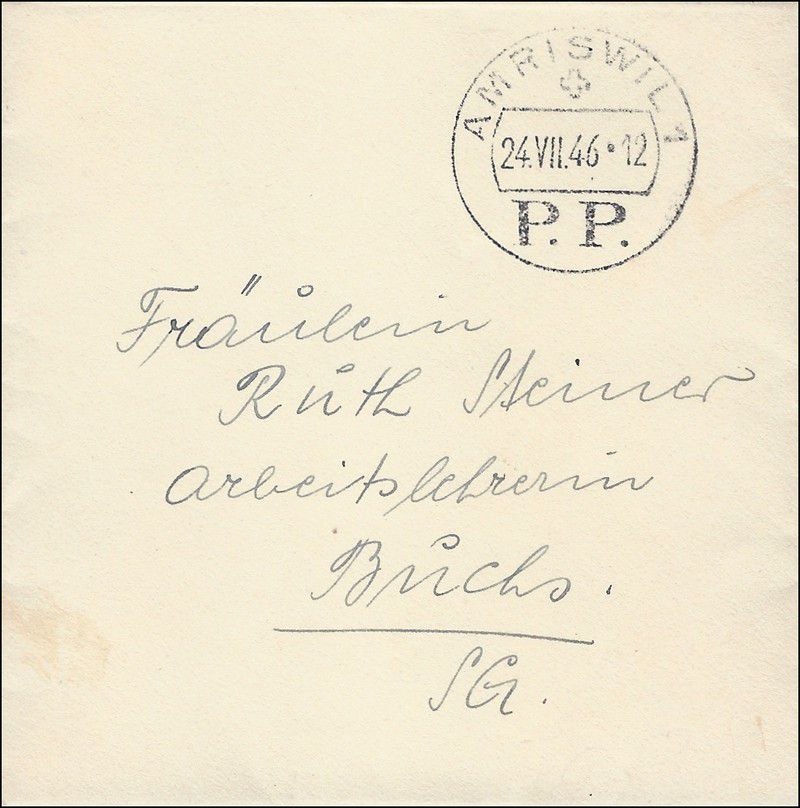 AMRISWIL 1
24.VII.46•12
P.P.
Fräulein
Ruth Steiner
Arbeitslehrerin
Buchs.
SG.